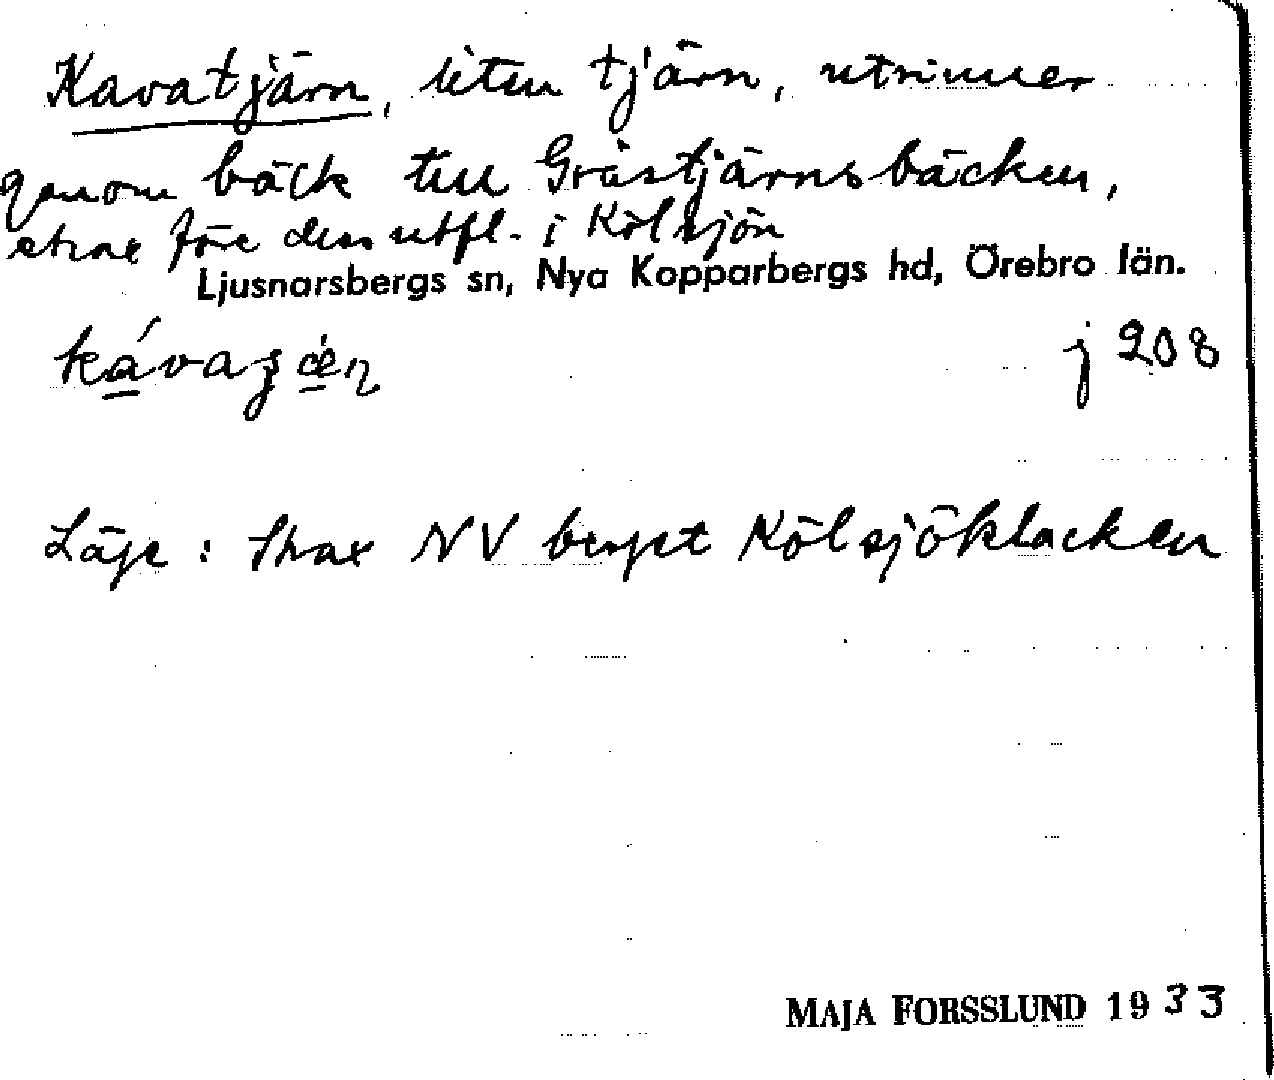 Kavatjärn, liten tjärn, utrinner
genom bäck till Gråstjärnsbäcken,
strax före dess utfl. i Kölsjön
Ljusnarsbergs sn, Nya Kopparbergs hd, Örebro län.
j 208
Läge: strax NV berget Kölsjöklacken
MAJA FORSSLUND 1933